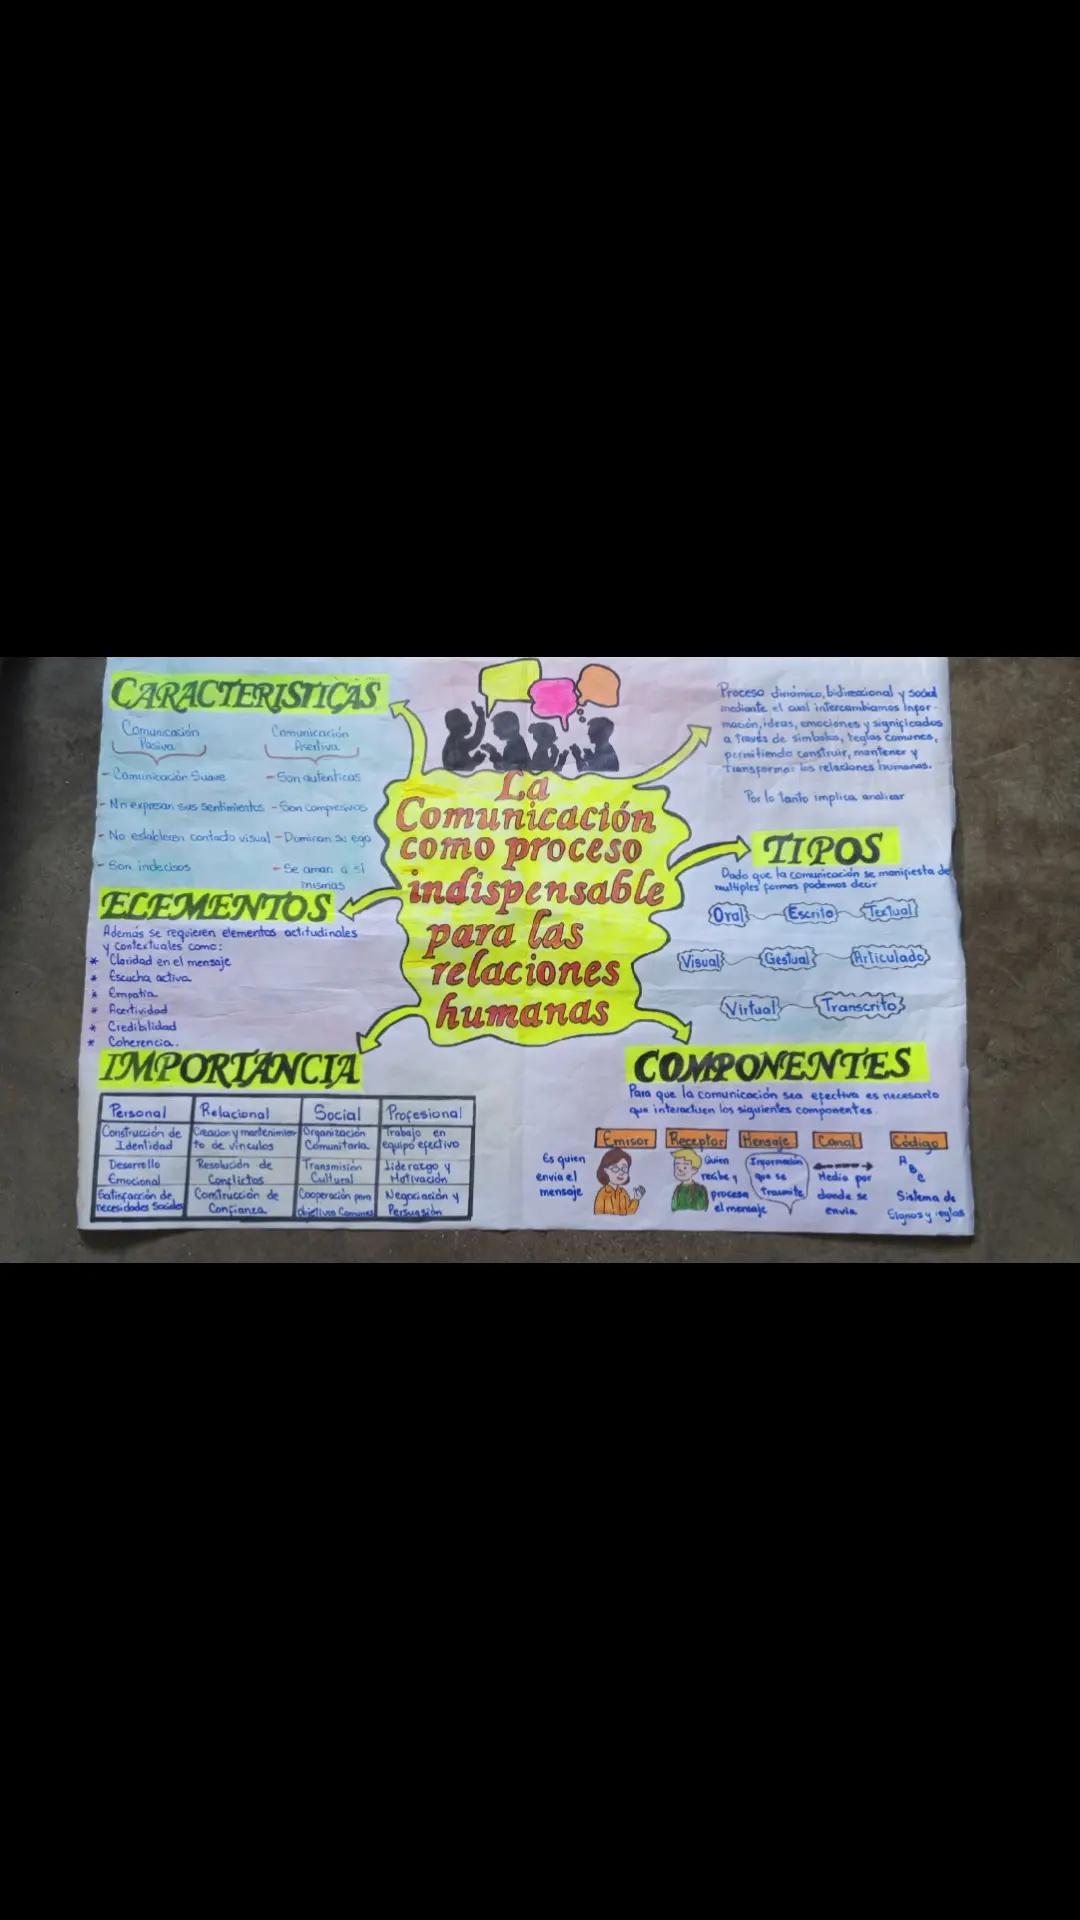 CARACTERISTICAS
Comunicación
Pasiva
- Comunicación Suave
- No expresan sus sentimientos
- No establecen contacto visual
- Son indecisos
Comunicación
Asertiva
- Son auténticas
- Son compresivos
- Dominan su ego
- Se aman a sí
mismas
ELEMENTOS
Además se requieren elementos actitudinales
y contextuales como:
* Claridad en el mensaje
* Escucha activa
* Empatía
* Acertividad
* Credibilidad
* Coherencia.
IMPORTANCIA
Personal Relacional Social Profesional
Construcción de Creacion y mantenimien Organización Trabajo en
Identidad to de vínculos Comunitaria equipo efectivo
Desarrollo Resolución de Transmisión Liderazgo y
Emocional Conflictos Cultural Motivación
Satisfacción de Construcción de Cooperación para Negociación y
necesidades Sociales Confianza objetivos Comunes Persuasión
La
Comunicación
como proceso
indispensable
para las
relaciones
humanas
Proceso dinámico, bidireccional y social
mediante el cual intercambiamos Infor-
mación, ideas, emociones y significados
a través de símbolos, reglas comunes,
permitiendo construir, mantener y
Transformar las relaciones humanas.
Por lo tanto implica analizar
TIPOS
Dado que la comunicación se manifiesta de
multiples formas podemos decir
Oral Escrito Textual
Visual Gestual Articulado
Virtual Transcrito
COMPONENTES
Para que la comunicación sea efectiva es necesario
que interactuen los siguientes componentes.
Emisor Receptor Mensaje Canal Código
Es quien
envía el
mensaje
Quien
recibe y
procesa
el mensaje
Información
que se
Trasmite
Medio por
donde se
envía
A
B
C
Sistema de
Signos y reglas